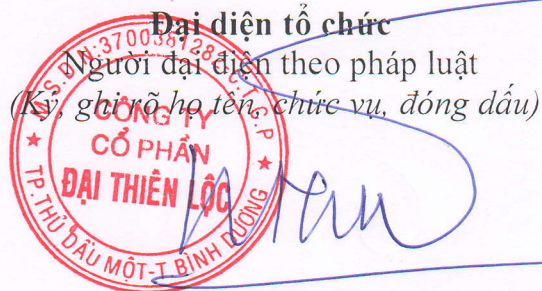 Đại diện tổ chức
Người đại diện theo pháp luật
(Ký, ghi rõ họ tên, chức vụ, đóng dấu)
CÔNG TY
CỔ PHẦN
ĐẠI THIÊN LỘC
TP.THỦ DẦU MỘT-T.BÌNH DƯƠNG